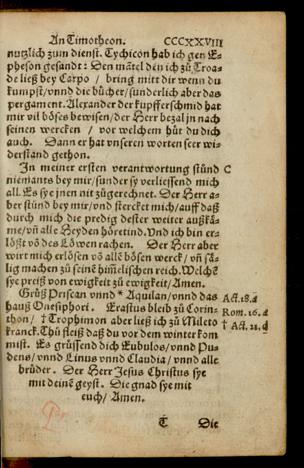 An Timotheon. CCCXXVIII
nutzlich zum dienst. Tychicon hab ich gen E-
pheson gesandt: Den mātel den ich zů Troa-
de ließ bey Carpo / bring mitt dir wenn du
kumpst/vnnd die bůcher/sunderlich aber das
pergament. Alexander der kupfferschmid hat
mir vil böses bewisen/der Herr bezal jn nach
seinen wercken / vor welchem hůt du dich
auch. Dann er hat vnseren worten seer wi-
derstand gethon.
In meiner ersten verantwortung stůnd C
niemants bey mir/sunder sy verliessend mich
all. Es sye jnen nit zůgerechnet. Der Herr a-
ber stůnd bey mir/vnd stercket mich/auff daß
durch mich die predig dester weiter außkä-
me/vñ alle Heyden höretind. Vnd ich bin er-
lößt vō des Löwen rachen. Der Herr aber
wirt mich erlösen vō allē bösen werck/ vñ sä-
lig machen zů seinē himelischen reich. Welchē
sye preiß von ewigkeit zů ewigkeit/Amen.
Grůß Priscan vnnd * Aquilan/vnnd das Act.18.a
hauß Onesiphori. Erastus bleib zů Corin- Rom.16.a
thon/ † Trophimon aber ließ ich zů Mileto † Act.21.d
kranck. Thů fleiß daß du vor dem winter kom
mist. Es grůssend dich Eubolus/vnnd Pu-
dens/vnnd Linus vnnd Claudia/ vnnd alle
brůder. Der Herr Jesus Christus sye
mit deinē geyst. Die gnad sye mit
euch/ Amen.
T Die